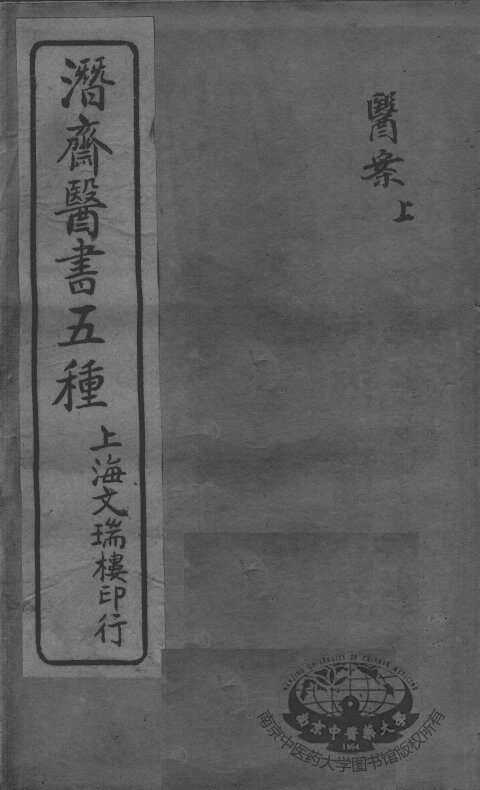 醫案
上
潛齋醫書五種
上海文瑞樓印行
NANJING UNIVERSITY OF CHINESE MEDICINE
南京中醫藥大學
1954
南京中医药大学图书馆版权所有